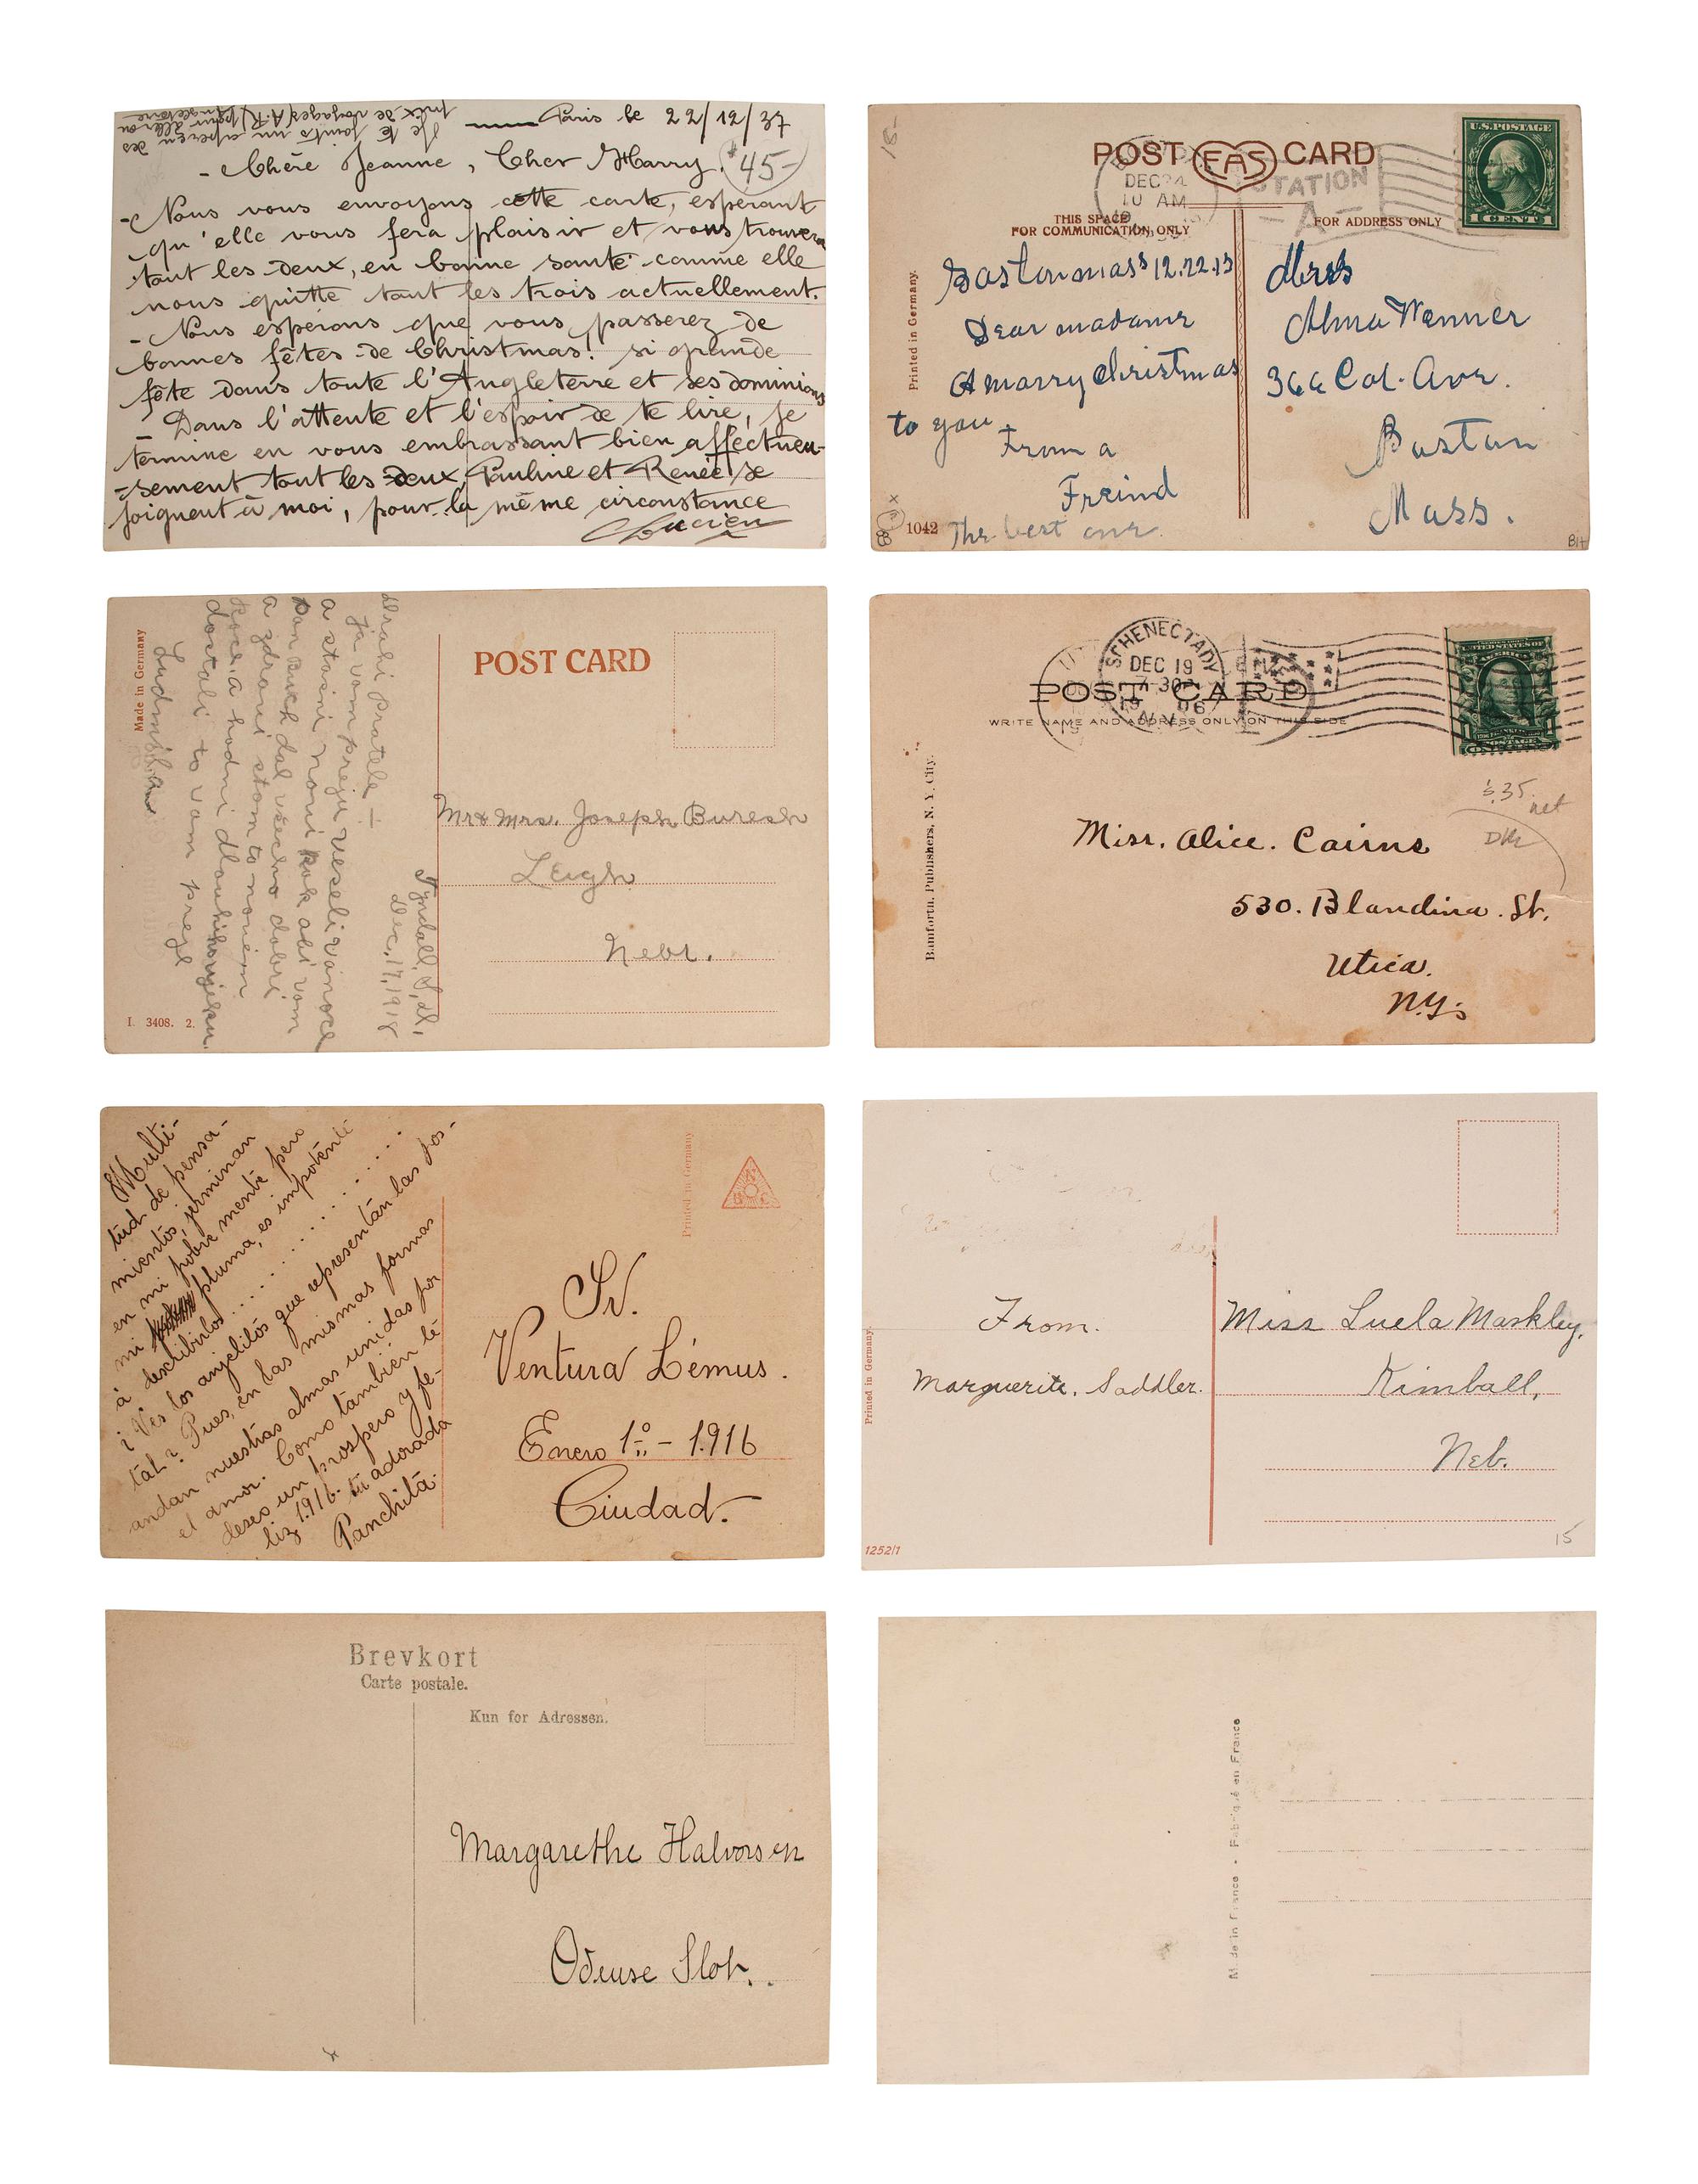 Paris le 22/12/37
Je te joints un aperçu des
prix de voyages (A.R) pour aller en
Angleterre
- Chère Jeanne, Cher Harry.
$45-
- Nous vous envoyons cette carte, espérant
qu'elle vous fera plaisir et vous trouvera
tout les deux, en bonne santé comme elle
nous quitte tout les trois actuellement.
- Nous espérons que vous passerez de
bonnes fêtes de Christmas! si grande
fête dans toute l'Angleterre et ses dominions
- Dans l'attente et l'espoir de te lire, je
termine en vous embrassant bien affectueu-
-sement tout les deux, Pauline et Renée se
joignent à moi, pour la même circonstance
Lucien
18-
POST EAS CARD
DEC 24
10 AM
STATION
A
U.S. POSTAGE
1 CENT 1
THIS SPACE
FOR COMMUNICATION ONLY
FOR ADDRESS ONLY
Printed in Germany.
Boston mass 12.22.13
Dear madame
A marry christmas
to you
From a
Freind
The best one.
1042
Mrss
Alma Wenner
366 Col. Ave.
Boston
Mass.
BH
Made in Germany
I. 3408. 2.
POST CARD
Tyndall, S, D.,
Dec, 17, 1918
drahi pratele —
ja vam preju veseli vanoce
a stastni novi Rok abi vam
pan Buch dal vsecko dobri
a zdravi stom to novem
Roce. a hodni dlouhihovjeku
dostali to vam preje
Ludmila
Mr & Mrs. Joseph Buresh
Leigh
Nebr.
SCHENECTADY
DEC 19
7 30P
N.Y.
POST CARD
WRITE NAME AND ADDRESS ONLY ON THIS SIDE
Bamforth, Publishers, N. Y. City.
3.35 net
Miss. Alice. Cairns
530. Blandina. St.
Utica.
N.Y.
Multi-
túd de pensa-
mientós, jerminan
en mi pobre menté pero
mi pluma, es impotenté
á describirlos . . . . . . . . . .
¿Vés los anjelitós que representán las pos-
tál? Pues, en las mismas formas
andan nuestrás almas unidas por
el amor. Como tambien té
deseo un prospero y fe-
liz 1.916. tú adorada
Panchitá.
Printed in Germany
Sr.
Ventura Lémus.
Enero 1º - 1.916
Ciudad.
Printed in Germany.
1252/1
From.
Marguerite. Saddler.
Miss Luela Markley,
Kimball,
Neb.
15
Brevkort
Carte postale.
Kun for Adressen.
Margarethe Halvorsen
Odense Slot.
Made in France - Fabriqué en France